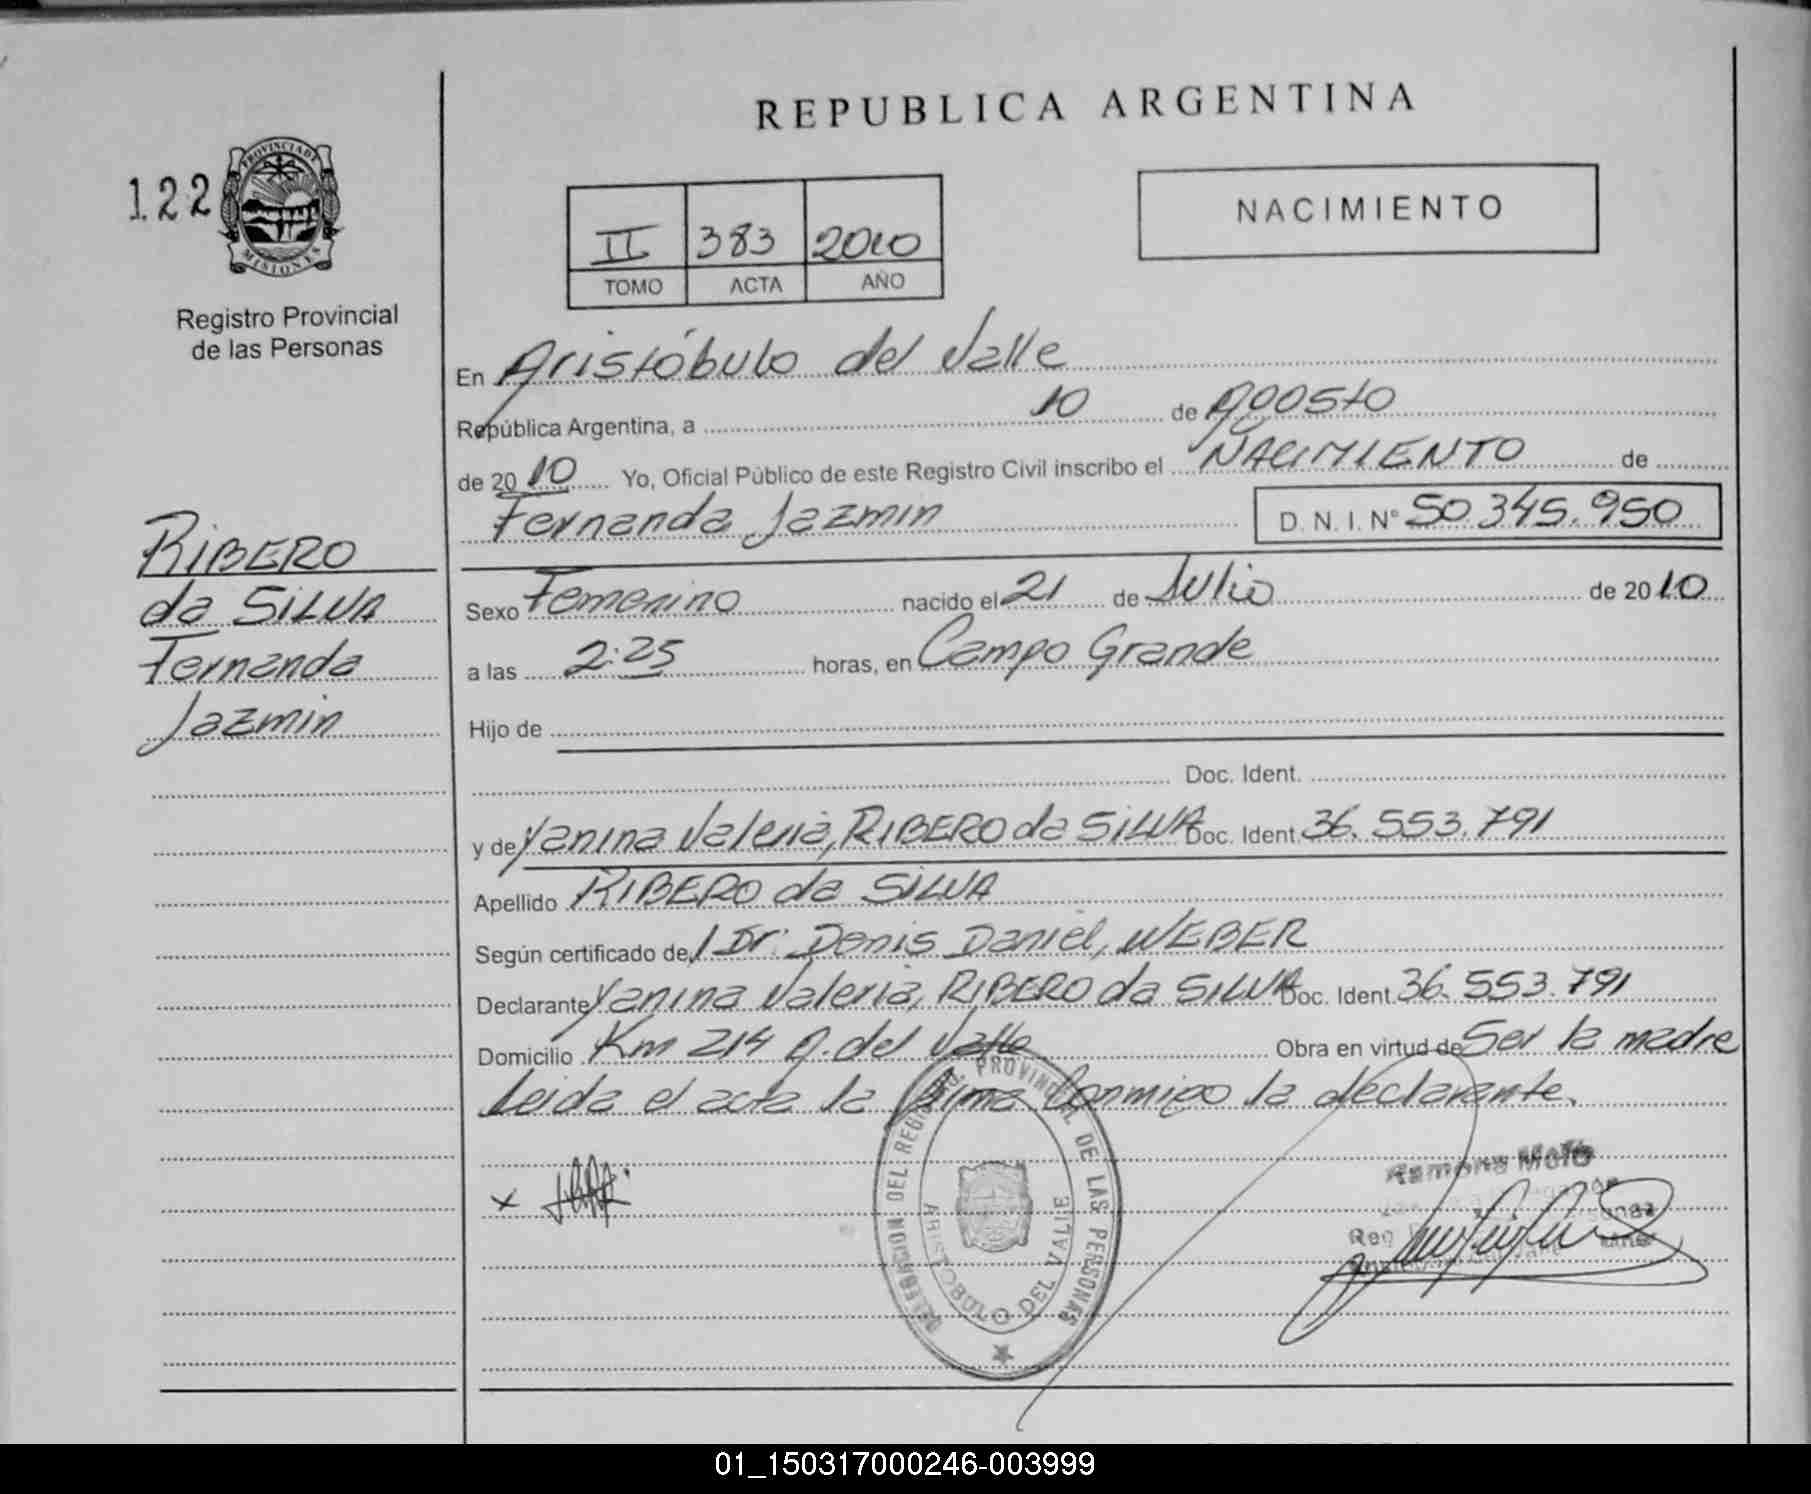 REPUBLICA ARGENTINA
122
PROVINCIA DE
MISIONES
Registro Provincial
de las Personas
II 383 2010
TOMO ACTA AÑO
NACIMIENTO
RIBERO
da SILVA
Fernanda
Jazmin
En Aristóbulo del Valle
República Argentina, a 10 de Agosto
de 2010 Yo, Oficial Público de este Registro Civil inscribo el NACIMIENTO de
Fernanda Jazmin D. N. I. N° 50.345.950
Sexo Femenino nacido el 21 de Julio de 2010
a las 2:25 horas, en Campo Grande
Hijo de
Doc. Ident.
y de Yanina Valeria, RIBERO da SILVA Doc. Ident. 36.553.791
Apellido RIBERO da SILVA
Según certificado del Dr: Denis Daniel, WEBER
Declarante Yanina Valeria, RIBERO da SILVA Doc. Ident. 36.553.791
Domicilio Km 214 A. del Valle Obra en virtud de Ser la madre
Leida el acta la firma Conmigo la declarante.
DELEGACION DEL REGISTRO PROVINCIAL DE LAS PERSONAS
ARISTOBULO DEL VALLE
x
Ramona
Reg
01_150317000246-003999